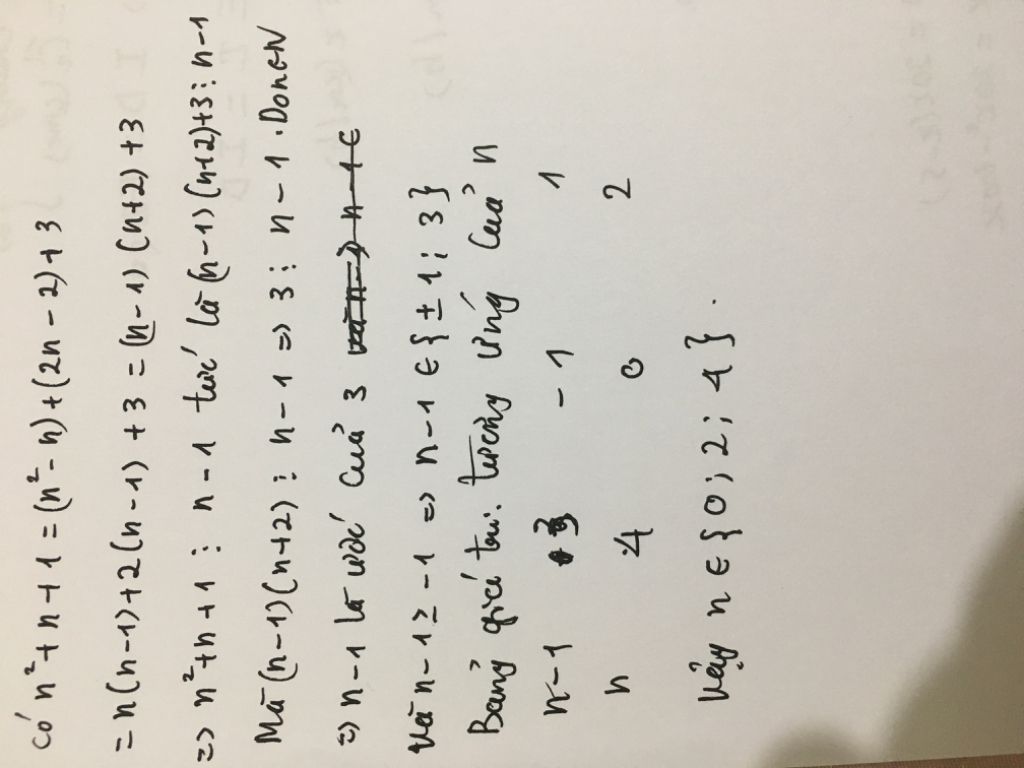 Có n² + n + 1 = (n² - n) + (2n - 2) + 3
= n(n-1) + 2(n-1) + 3 = (n-1)(n+2) + 3
=> n² + n + 1 ⋮ n - 1 tức là (n-1)(n+2)+3 ⋮ n-1
Mà (n-1)(n+2) ⋮ n-1 => 3 ⋮ n-1. Do n∈N
=> n-1 là ước của 3 và n-1 n-1 ∈
và n-1 ≥ -1 => n-1 ∈ {±1; 3}
Bảng giá trị tương ứng của n
n-1 3 -1 1
n 4 0 2
Vậy n ∈ {0; 2; 4}.